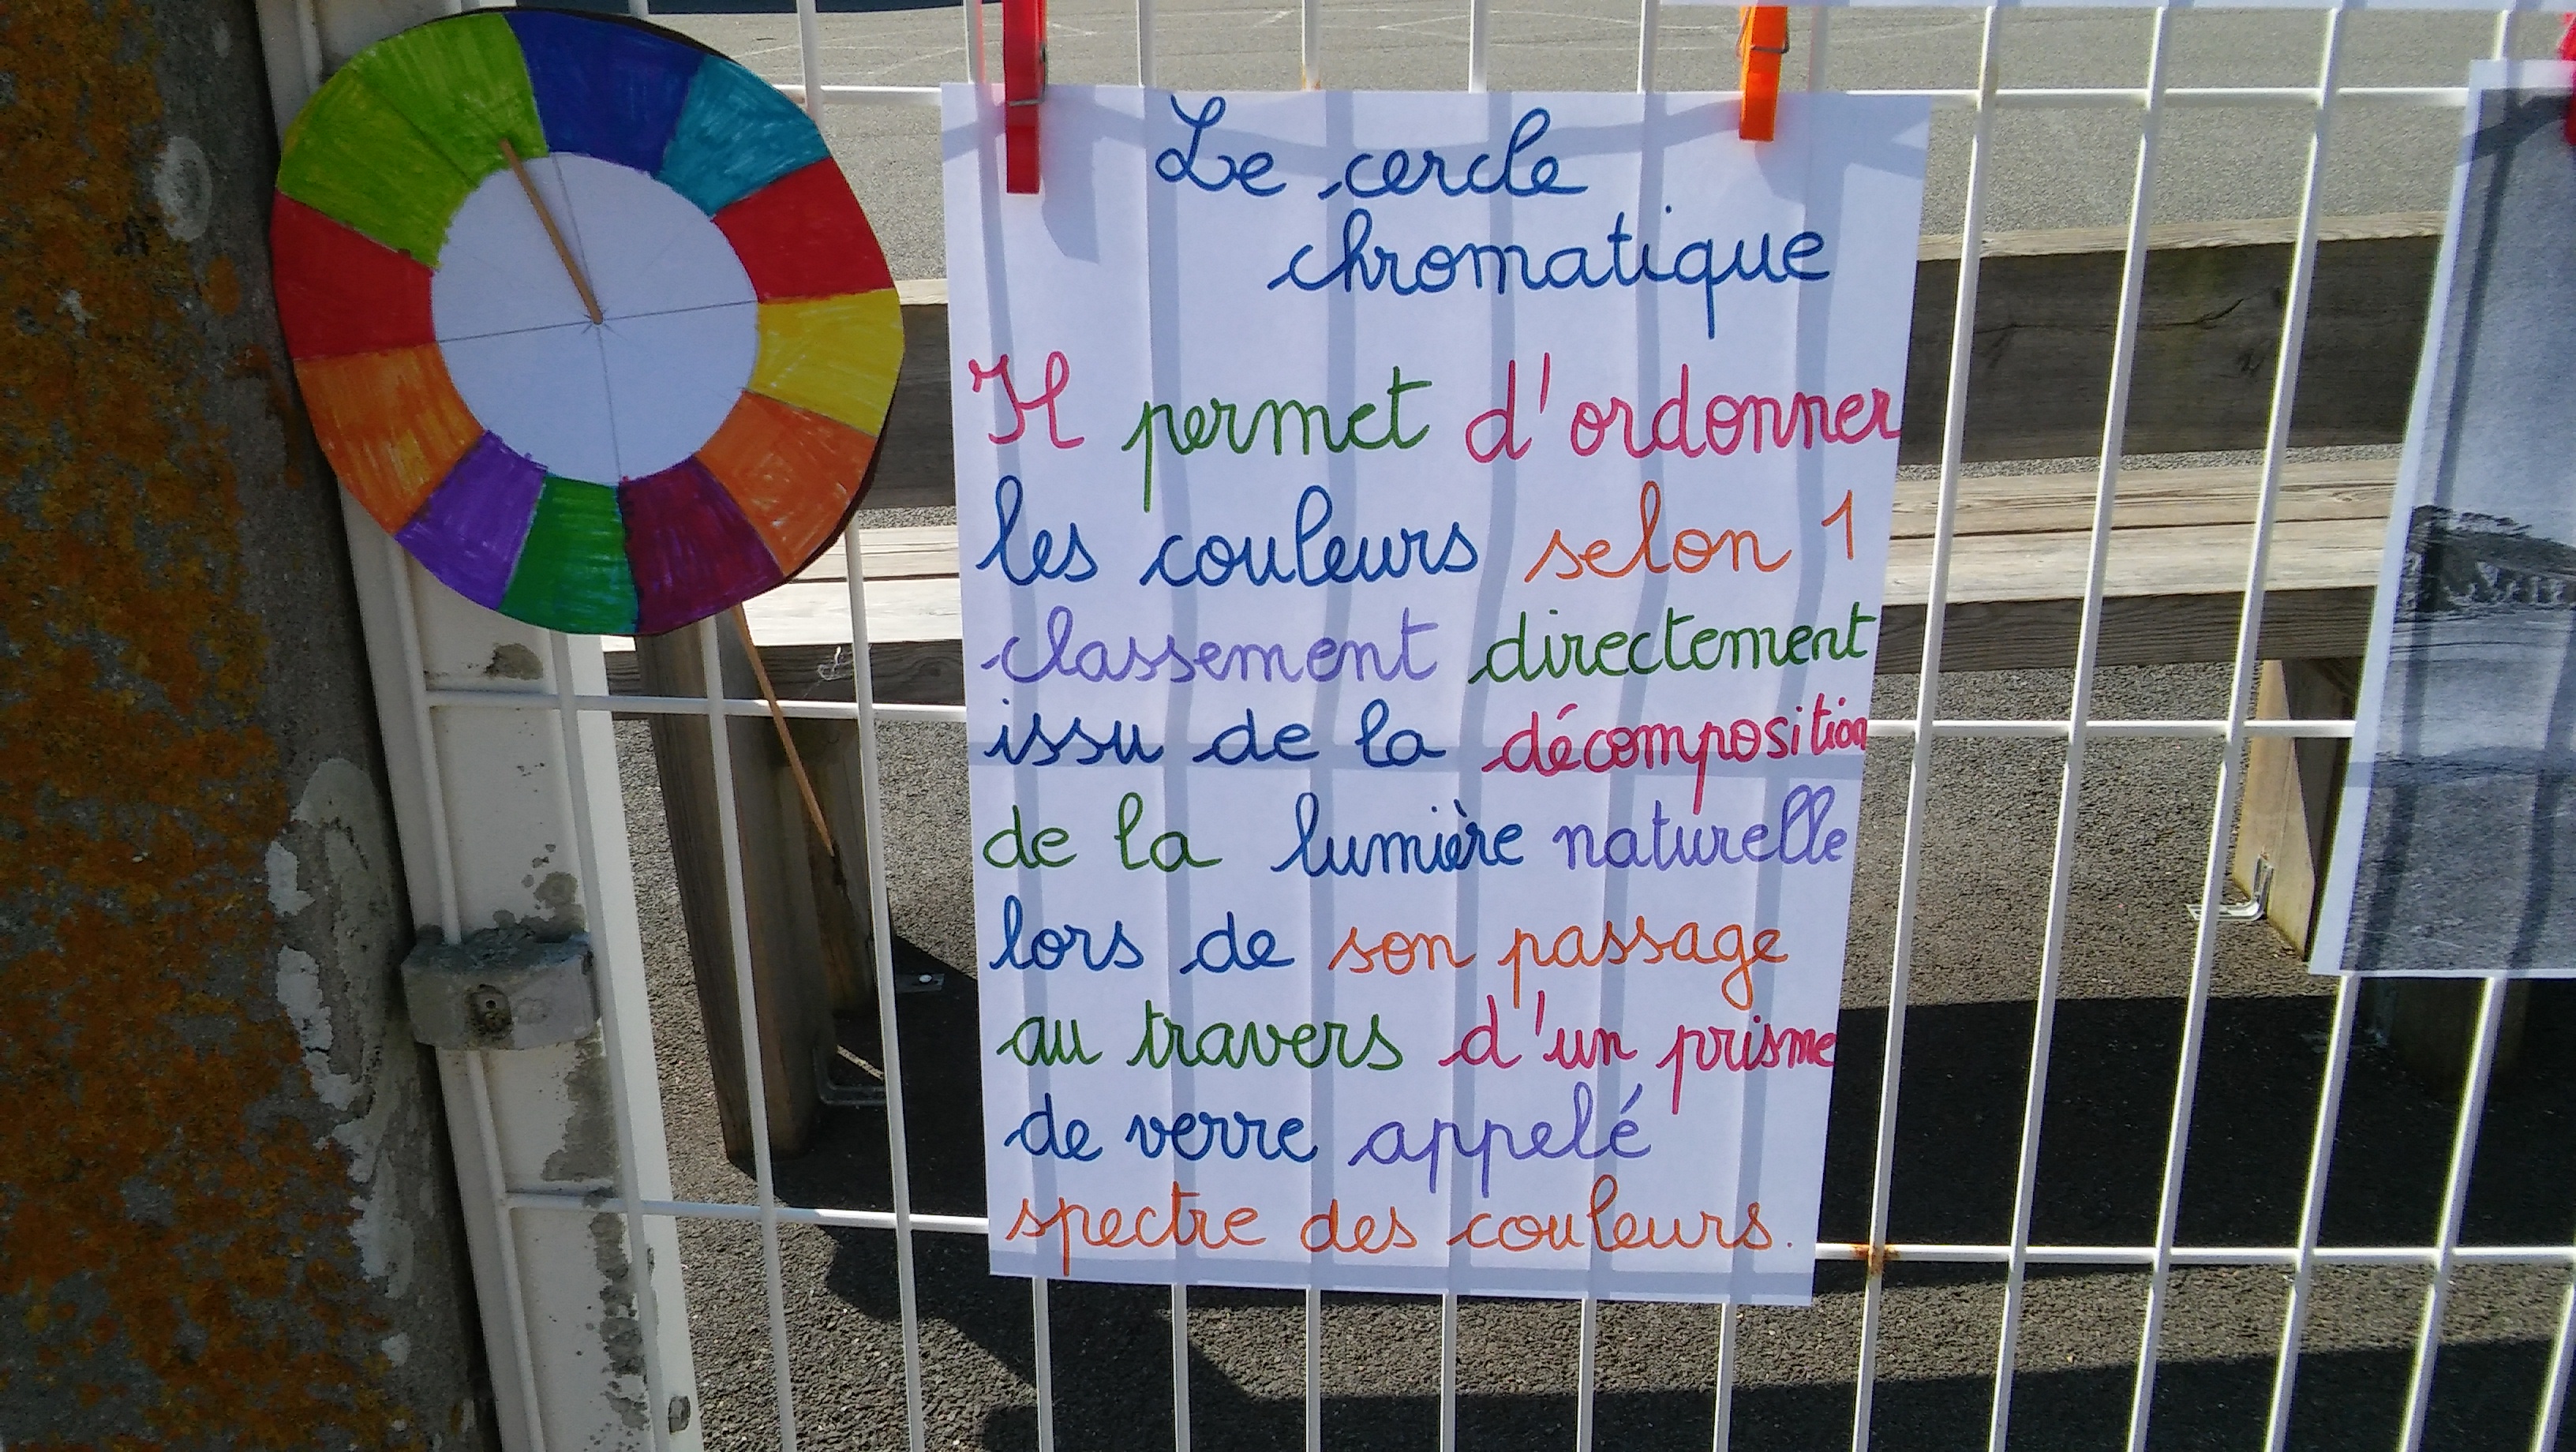 Le cercle
chromatique
Il permet d'ordonner
les couleurs selon 1
classement directement
issu de la décomposition
de la lumière naturelle
lors de son passage
au travers d'un prisme
de verre appelé
spectre des couleurs.